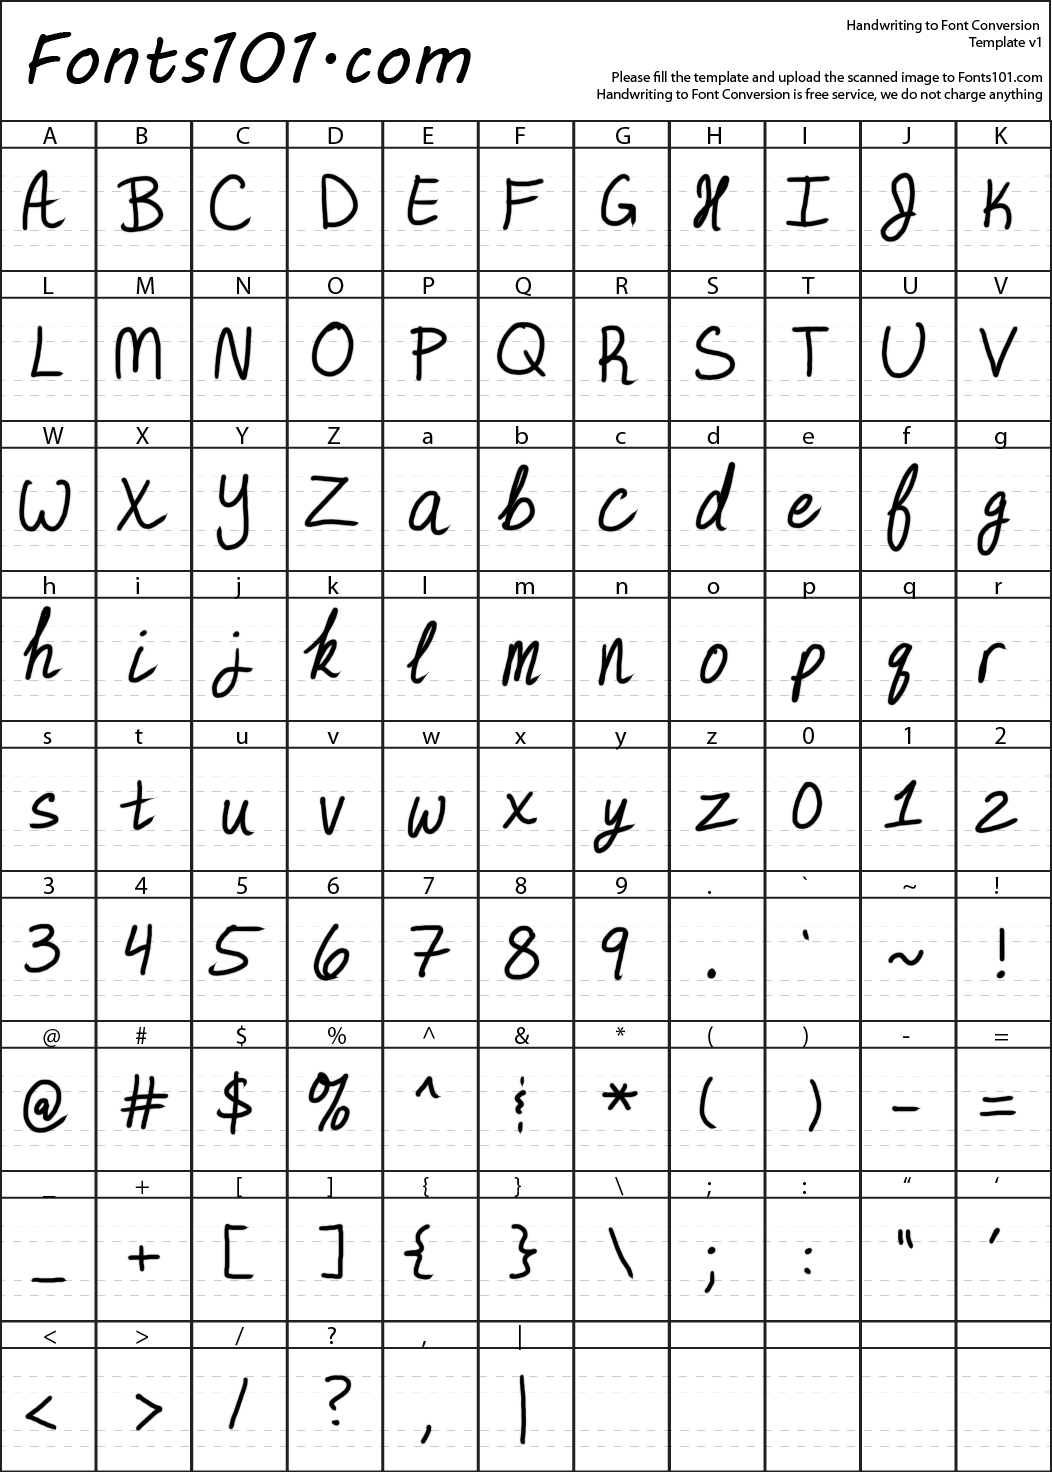 Fonts101.com
Handwriting to Font Conversion
Template v1
Please fill the template and upload the scanned image to Fonts101.com
Handwriting to Font Conversion is free service, we do not charge anything
A B C D E F G H I J K
A B C D E F G H I J K
L M N O P Q R S T U V
L M N O P Q R S T U V
W X Y Z a b c d e f g
W X Y Z a b c d e f g
h i j k l m n o p q r
h i j k l m n o p q r
s t u v w x y z 0 1 2
s t u v w x y z 0 1 2
3 4 5 6 7 8 9 . ` ~ !
3 4 5 6 7 8 9 . ` ~ !
@ # $ % ^ & * ( ) - =
@ # $ % ^ & * ( ) - =
_ + [ ] { } \ ; : “ ‘
_ + [ ] { } \ ; : " ′
< > / ? , |
< > / ? , |